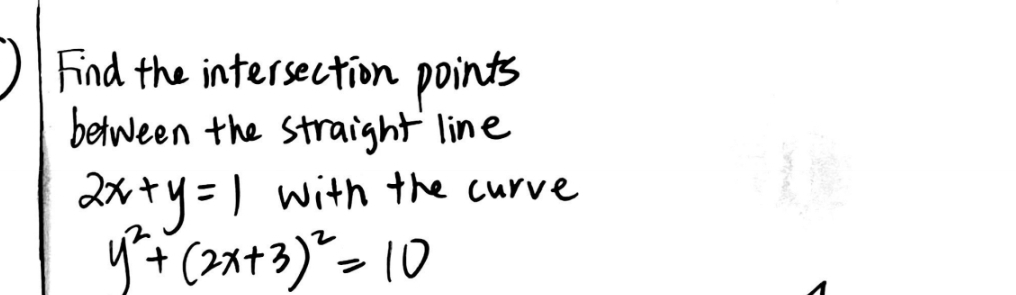 Find the intersection points
between the straight line
2x+y=1 with the curve
y²+(2x+3)²=10